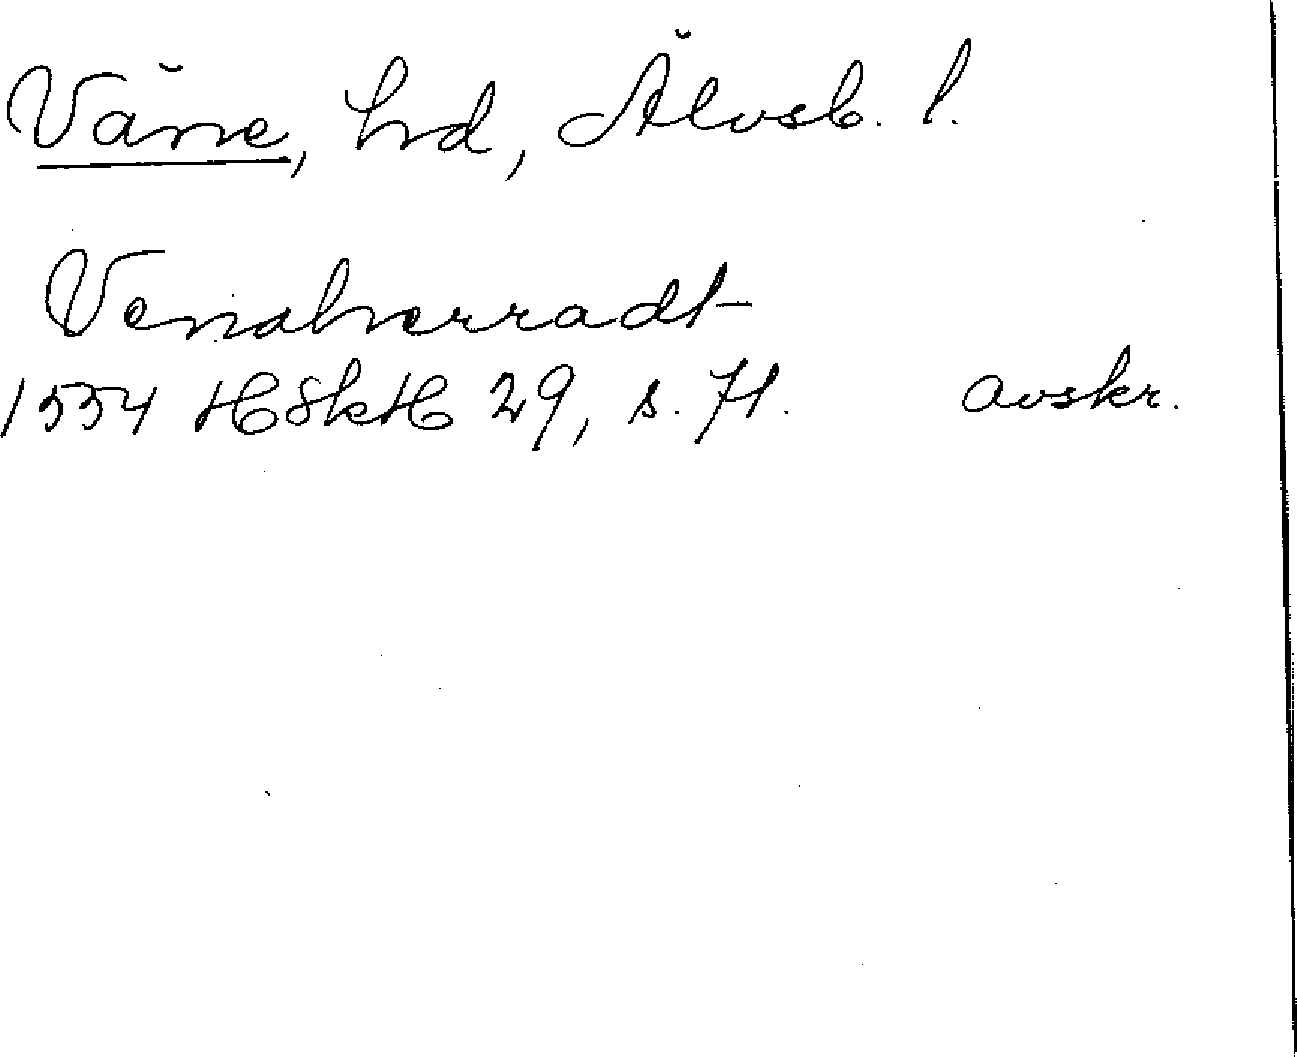 Väne, hd, Älvsb. l.
Venaherradt
1554 HSkH 29, s. 71. avskr.